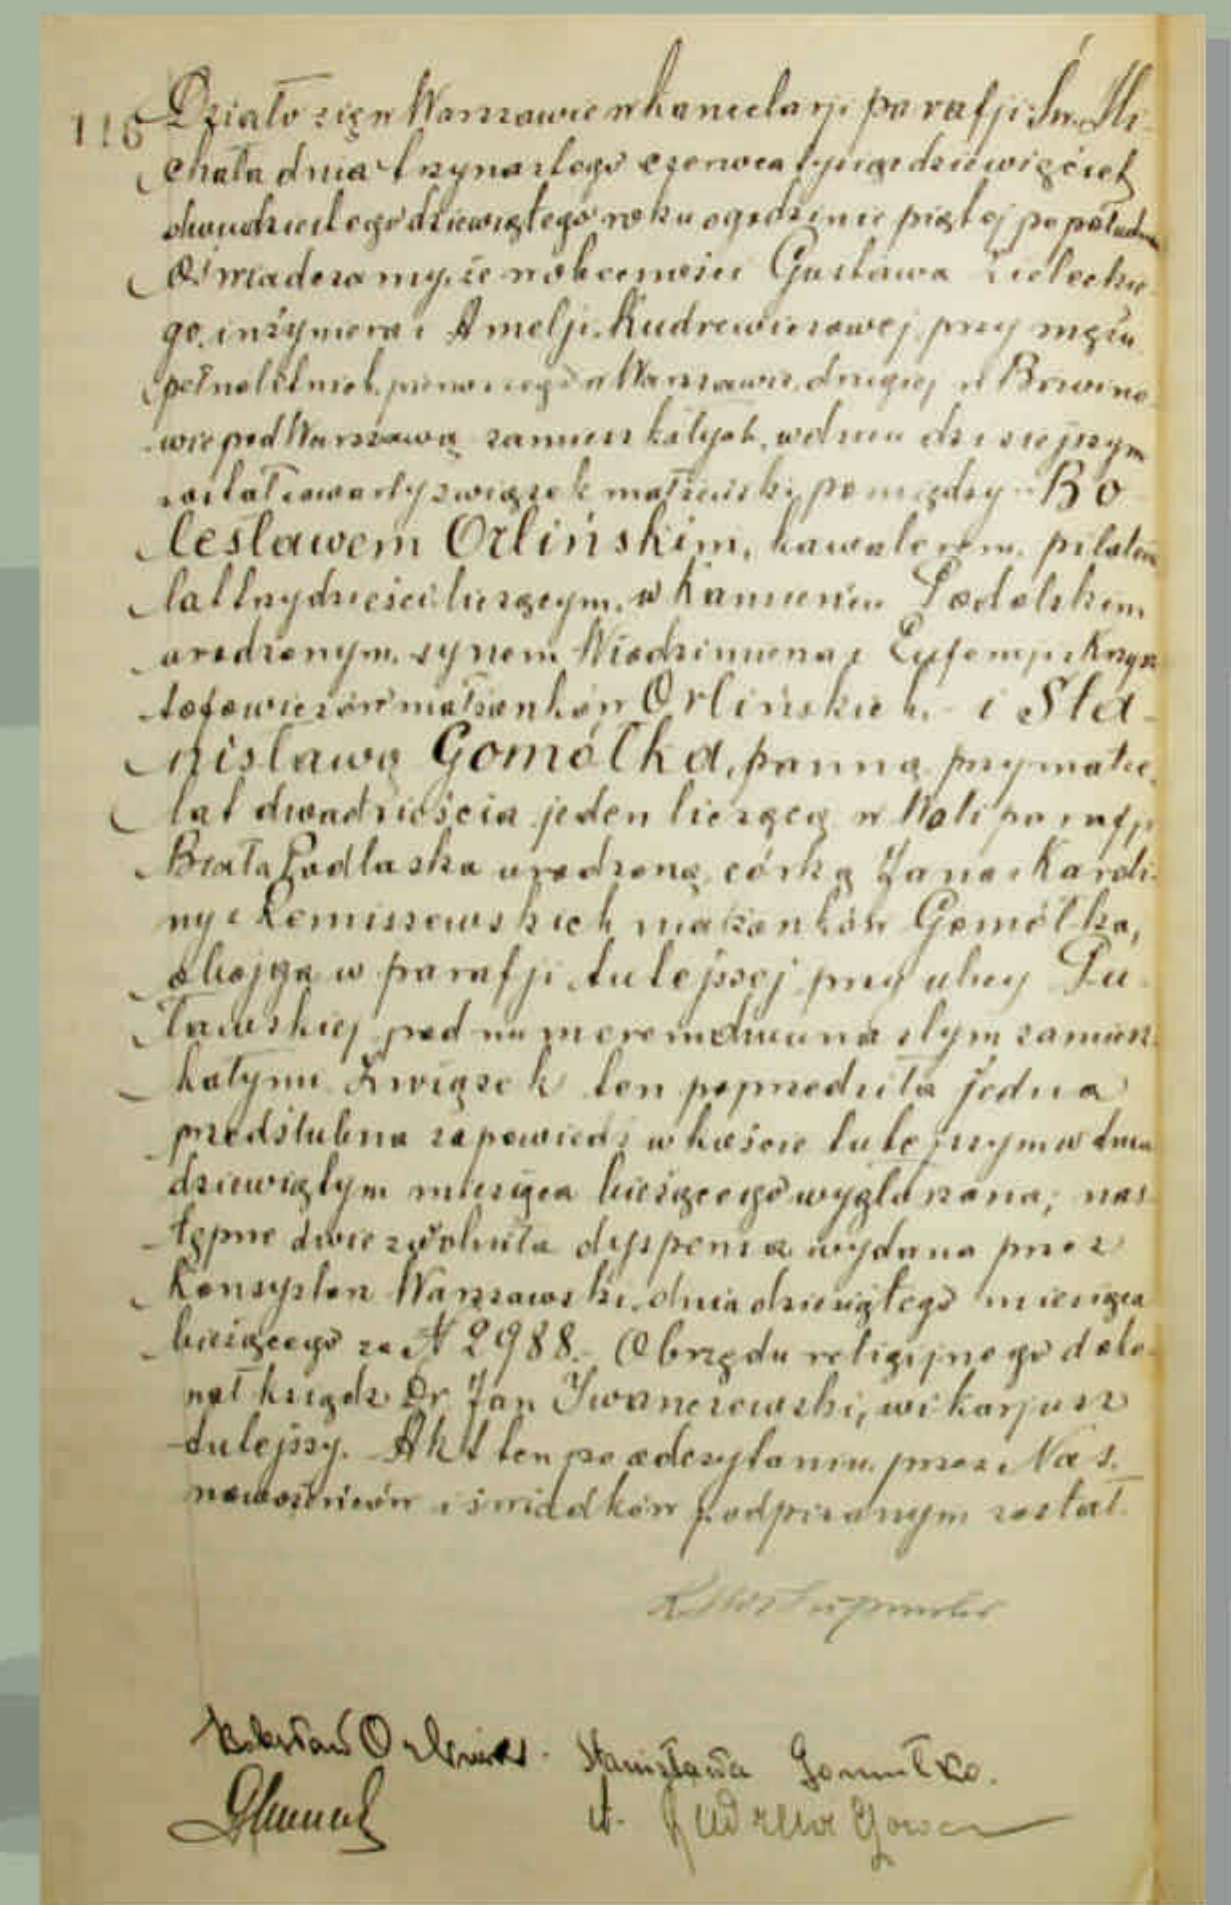 116 Działo się w Warszawie w kancelarji parafji Św. Mi-
chała dnia trzynastego czerwca tysiąc dziewięćset
dwudziestego dziewiątego roku o godzinie piątej po południu
Oświadczamy, że w obecności Gustawa
go, inżyniera i Amelji Kudrewiczowej, przy mężu
pełnoletnich, pierwszego w Warszawie, drugiej w Brwino-
wie pod Warszawą zamieszkałych, w dniu dzisiejszym
został zawarty związek małżeński pomiędzy Bo-
lesławem Orlińskim, kawalerem, pilotem
lat trzydzieści liczącym, w Kamieńcu Podolskim
urodzonym, synem Włodzimierza i Eufemji z Krzysz-
tofowiczów małżonków Orlińskich, - i Sta-
nisławą Gomółka, panną, przy matce,
lat dwadzieścia jeden liczącą w Woli parafji
Biała Podlaska urodzoną, córką Jana i Karoli-
ny z Remiszewskich małżonków Gomółka,
obojga w parafji tutejszej przy ulicy Pu-
ławskiej pod numerem dwunastym zamiesz-
kałymi. Związek ten poprzedziła jedna
przedślubna zapowiedź w kościele tutejszym w dniu
dziewiątym miesiąca bieżącego wygłoszona; nas-
tępne dwie zwolniła dyspensa wydana przez
Konsystorz Warszawski dnia dziesiątego miesiąca
bieżącego za № 2988. - Obrzędu religijnego doko-
nał ksiądz Dr. Jan Iwanczewski, wikarjusz
tutejszy. - Akt ten po odczytaniu przez Nas,
nowożeńców i świadków podpisanym został.
Bolesław Orliński. Stanisława Gomułko.